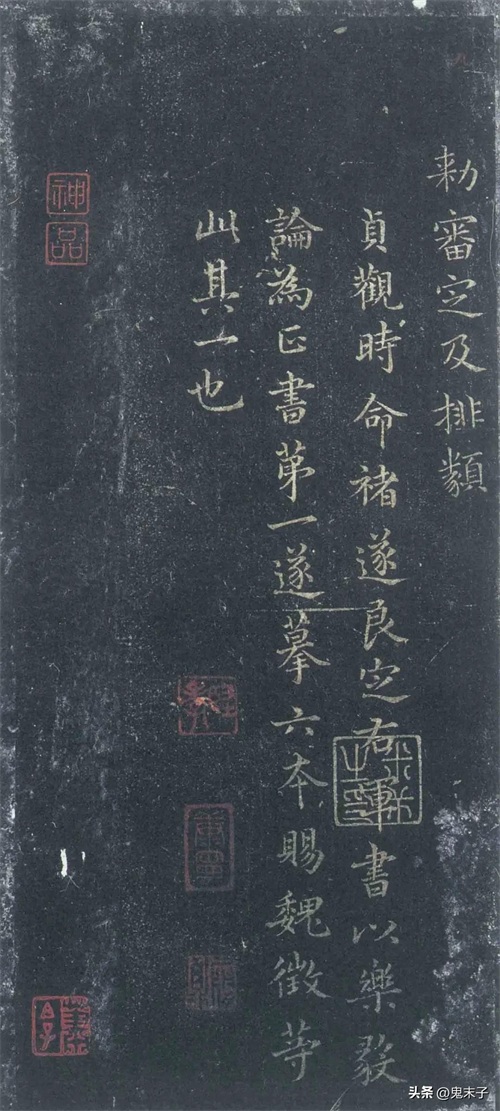 勑審定及排類
貞觀時命褚遂良定右軍書以樂毅
論為正書第一遂摹六本賜魏徵等
此其一也
神品
头条 @鬼末子